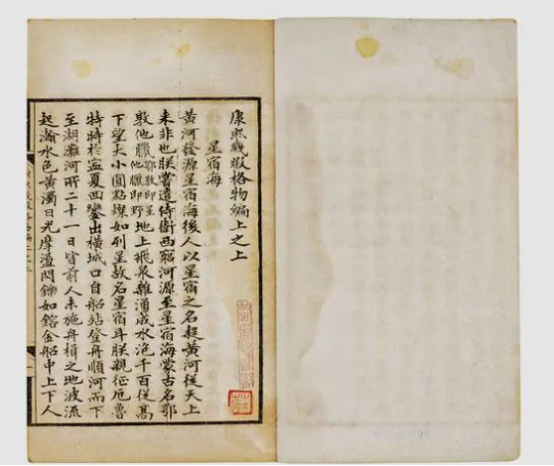 康熙幾暇格物編上之上
星宿海
黃河發源星宿海後人以星宿之名起黃河從天上
來非也朕嘗遣侍衛西窮河源至星宿海蒙古名鄂
敦他臘鄂敦即星他臘即野地上飛泉雜湧成水泡千百從高
下望大小圓點燦如列星故名星宿耳朕親征厄魯
特時於寧夏回鑾出橫城口自船站登舟順河而下
至湖灘河所二十一日皆前人未施舟楫之地波流
起瀚水色黃濁日光摩盪閃鑠如鎔金船中上下人